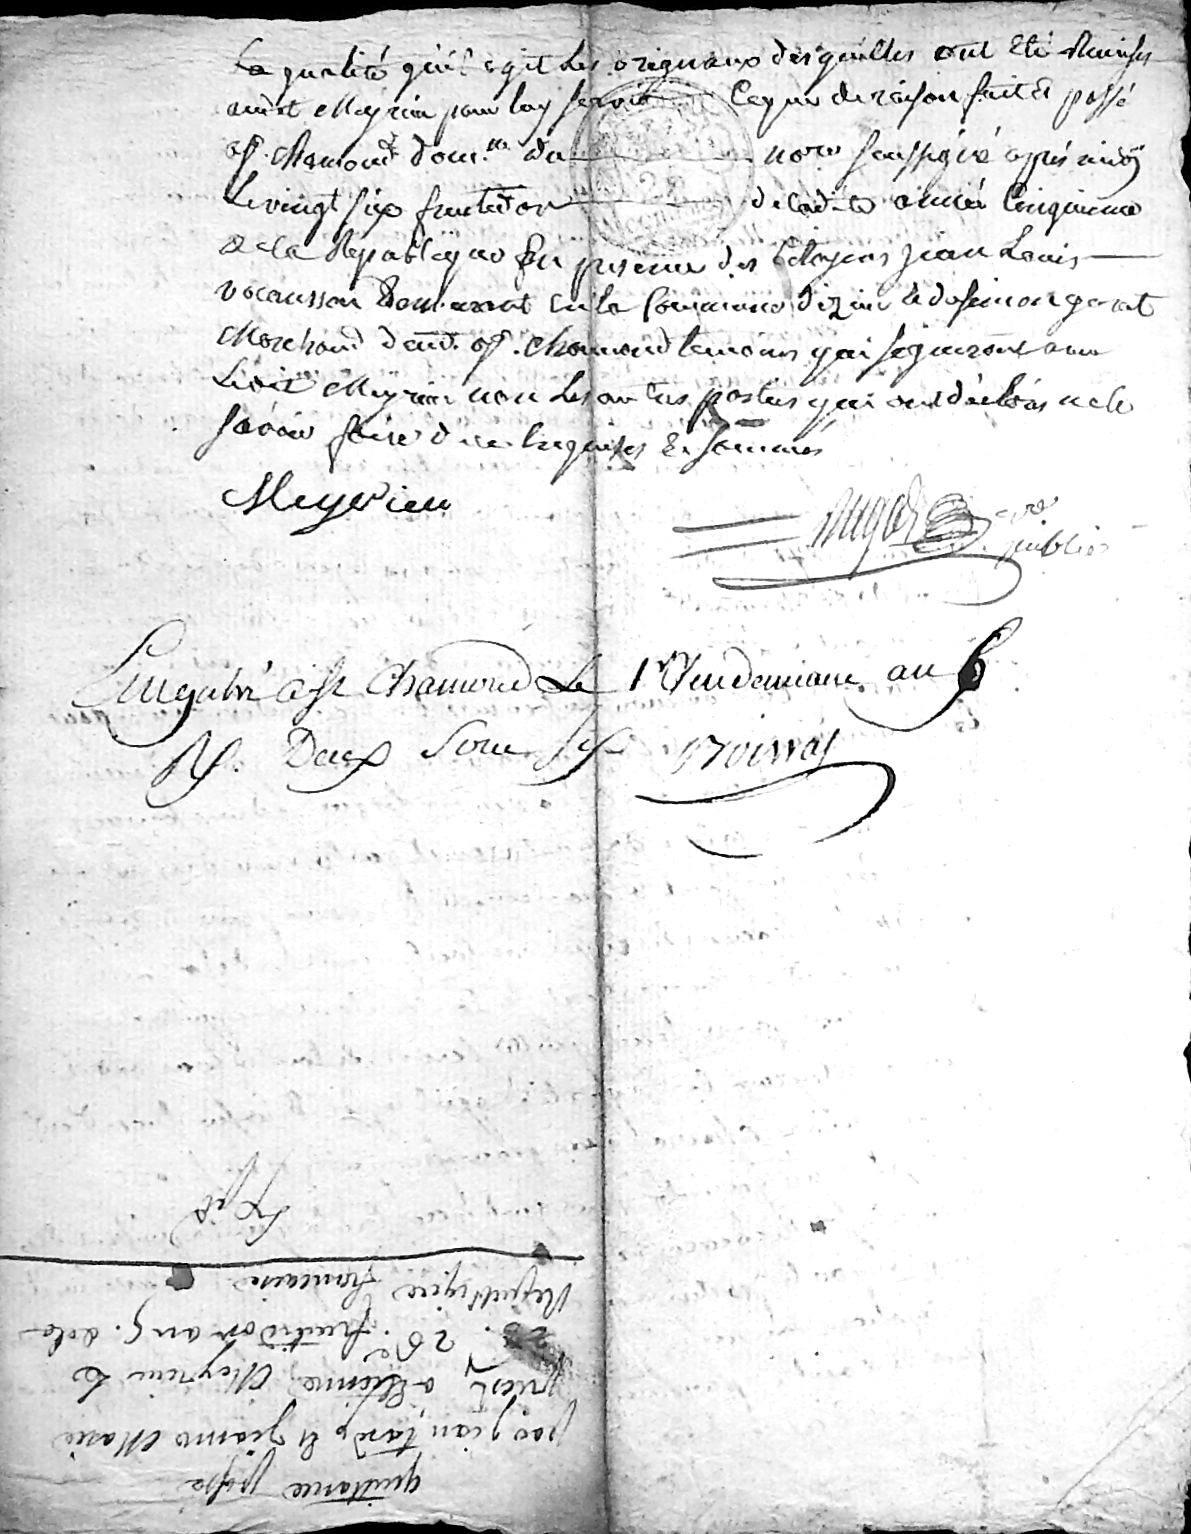 La qualité qu'il agit Les originaux desquelles ont été Remises
audit Meyrieu pour luy servir Ce que de raison fait & passé
a St. Chamond dom.lle du nore soussigné après midy
Le vingt six fructidor de ladite année Cinquieme
de la Republique En presence des Citoyens jean Louis
vocansson Demeurant en la Commune d'izieu &
Marchand demt. a St. Chamond temoins qui signeront avec
Ledit Meyrieu non Les autres parties qui ont déclarés ne le
savoir faire de ce Enquises & sommés
Meyrieu
publics
Enregistré a St Chamond Le 1er Vendemiaire an 6
R. Deux
quittance passé
par jean tardy & jeanne Marie
priest a Etienne Meyrieu Le
26. fructidor an 5. de la
Republique francaise